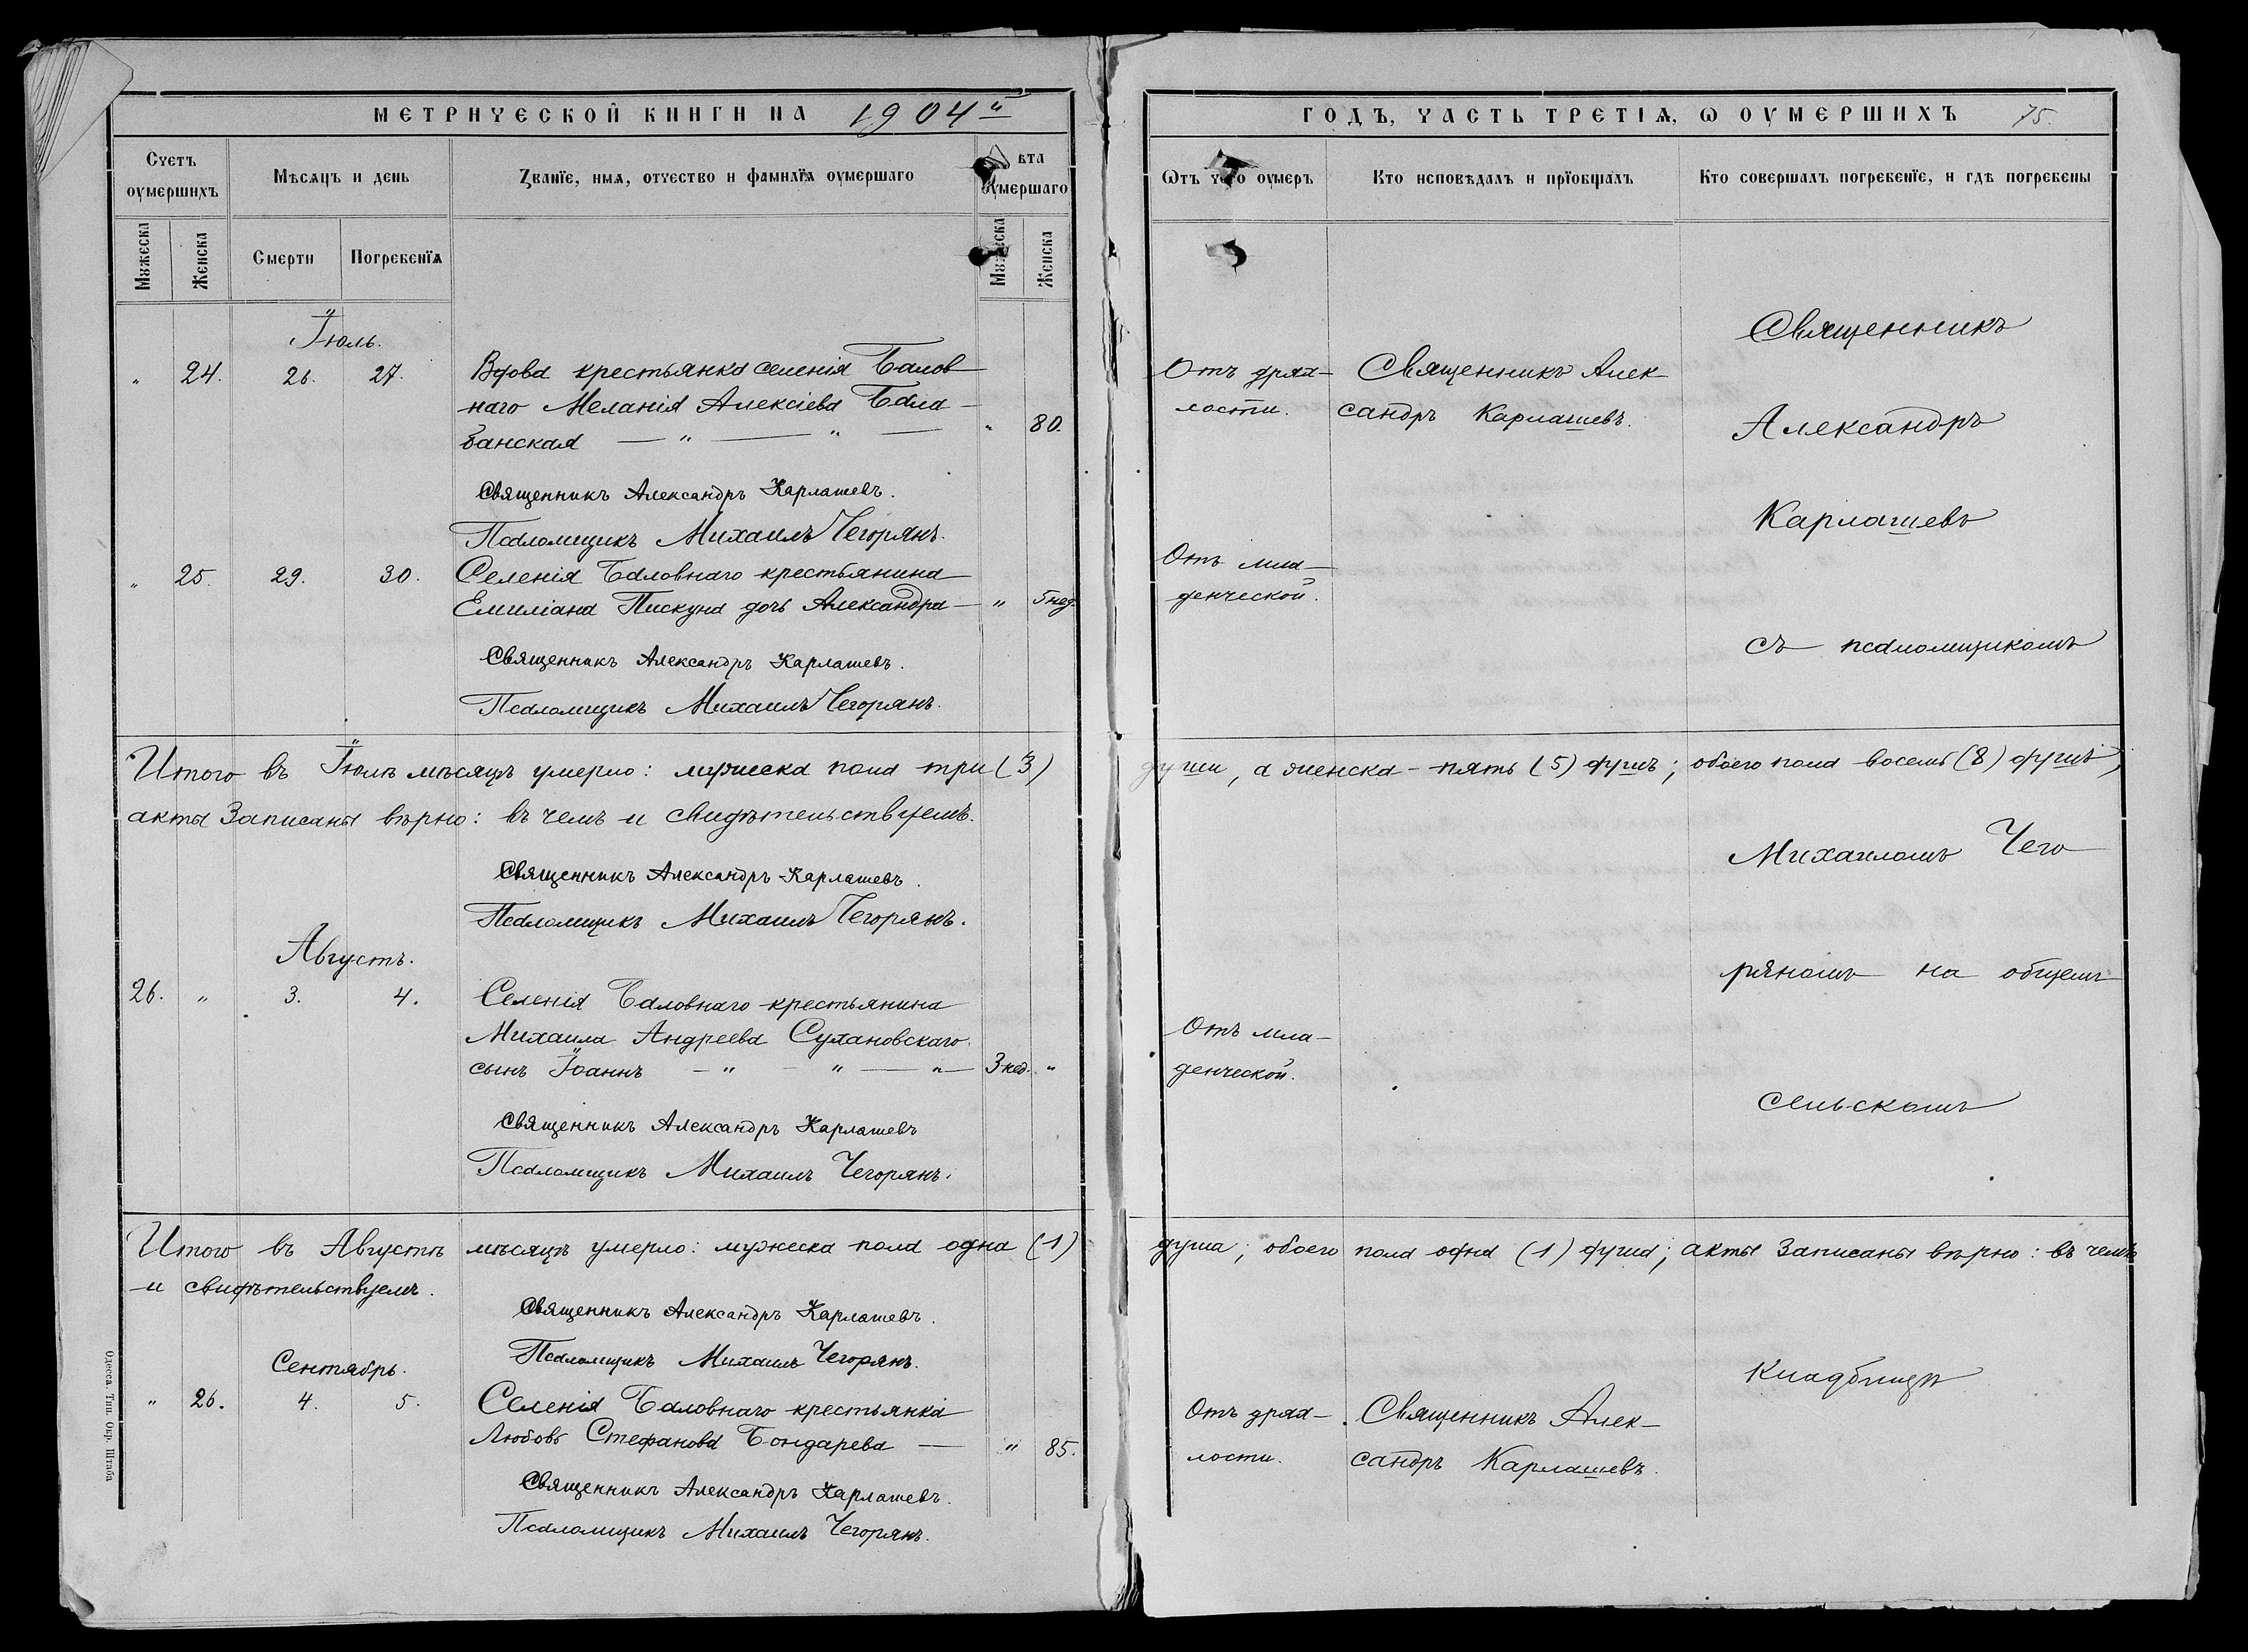 МЕТРИЧЕСКОЙ КНИГИ НА 1904й
Счетъ оумершихъ
Мѣсяцъ и день
Званїе, имя, отчество и фамилїя оумершаго
Лѣта оумершаго
Мужеска
Женска
Смерти
Погребенїя
Мужеска
Женска
Іюль.
" 24. 26. 27. Вдова крестьянка селенія Балов-
наго Меланія Алексіева Бала-
банская — " — " — " 80.
Священникъ Александръ Карлашевъ.
Псаломщикъ Михаилъ Чегорянъ.
" 25. 29. 30. Селенія Баловнаго крестьянина
Емиліана Пискуна дочь Александра — " 5 нед.
Священникъ Александръ Карлашевъ.
Псаломщикъ Михаилъ Чегорянъ.
Итого въ Іюлѣ мѣсяцѣ умерло: мужеска пола три (3)
акты записаны вѣрно: въ чемъ и свидѣтельствуемъ.
Священникъ Александръ Карлашевъ.
Псаломщикъ Михаилъ Чегорянъ.
Августъ.
26. " 3. 4. Селенія Баловнаго крестьянина
Михаила Андреева Сухановскаго
сынъ Іоаннъ — " — " — " — 3 нед. "
Священникъ Александръ Карлашевъ
Псаломщикъ Михаилъ Чегорянъ.
Итого въ Августѣ мѣсяцѣ умерло: мужеска пола одна (1)
и свидѣтельствуемъ.
Священникъ Александръ Карлашевъ.
Псаломщикъ Михаилъ Чегорянъ.
Сентябрь.
" 26. 4. 5. Селенія Баловнаго крестьянка
Любовь Стефанова Бондарева — " 85.
Священникъ Александръ Карлашевъ.
Псаломщикъ Михаилъ Чегорянъ.
Одесса. Тип. Окр. Штаба
ГОДЪ, ЧАСТЬ ТРЕТІЯ, Ѡ ОУМЕРШИХЪ 75.
Ѿтъ чего оумеръ
Кто исповѣдалъ и прїобщалъ
Кто совершалъ погребенїе, и гдѣ погребены
Священникъ
Отъ дрях- Священникъ Алек-
лости. сандръ Карлашевъ.
Александръ
Карлашевъ
Отъ мла-
денческой.
съ псаломщикомъ
души, а женска - пять (5) душъ; обоего пола восемь (8) душъ;
Михаиломъ Чего
ряномъ на общемъ
Отъ мла-
денческой.
сельскомъ
душа; обоего пола одна (1) душа; акты записаны вѣрно: въ чемъ
кладбищѣ
Отъ дрях- Священникъ Алек-
лости. сандръ Карлашевъ.